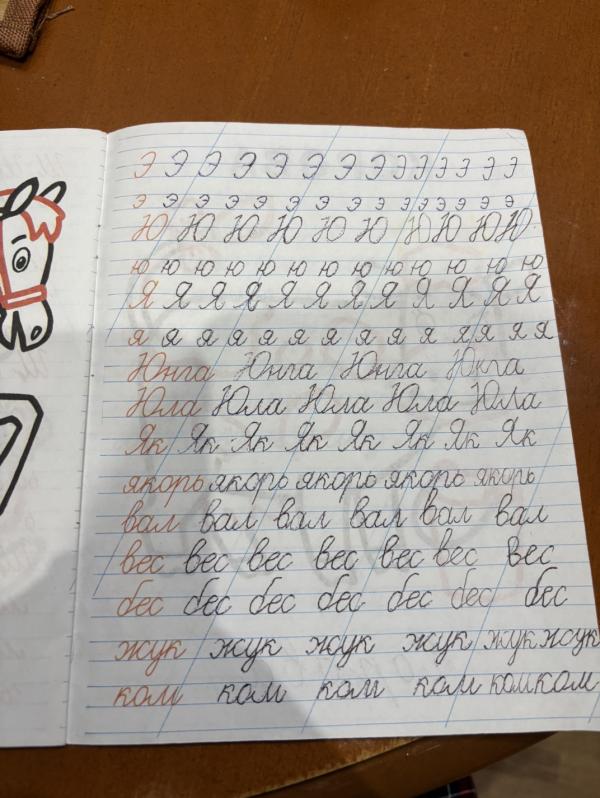 Э Э Э Э Э Э Э Э Э Э Э Э Э Э
э э э э э э э э э э э э э
Ю Ю Ю Ю Ю Ю Ю Ю Ю Ю
ю ю ю ю ю ю ю ю ю ю ю ю ю
Я Я Я Я Я Я Я Я Я Я Я Я
я я я я я я я я я я я я я
Юнга Юнга Юнга Юнга
Юла Юла Юла Юла Юла
Як Як Як Як Як Як Як Як
якорь якорь якорь якорь якорь
вал вал вал вал вал вал
вес вес вес вес вес вес вес
бес бес бес бес бес бес бес
жук жук жук жук жук жук
ком ком ком ком ком ком